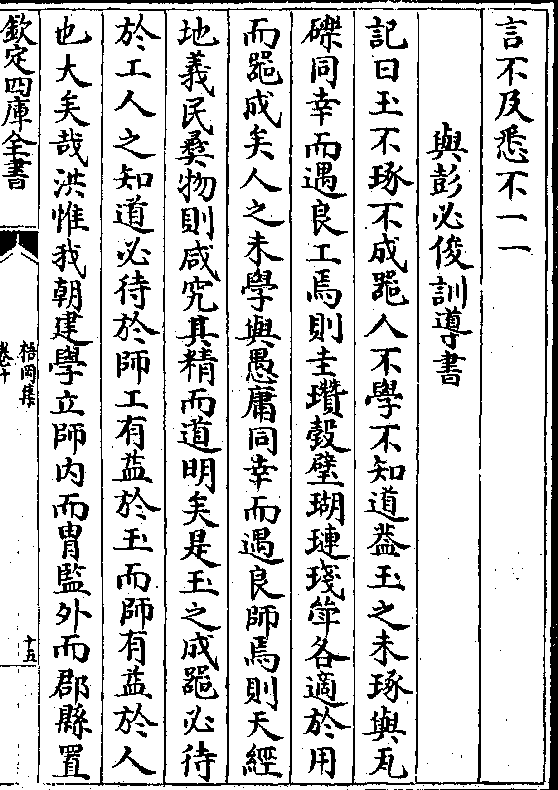 言不及悉不一一
與彭必俊訓導書
記曰玉不琢不成噐人不學不知道葢玉之未琢與瓦
礫同幸而遇良工焉則圭瓚榖璧瑚璉琖斚各適於用
而噐成矣人之未學與愚庸同幸而遇良師焉則天經
地義民彝物則咸究其精而道明矣是玉之成噐必待
於工人之知道必待於師工有益於玉而師有益於人
也大矣哉洪惟我朝建學立師内而胄監外而郡縣置
欽定四庫全書
梧岡集
卷十
十五